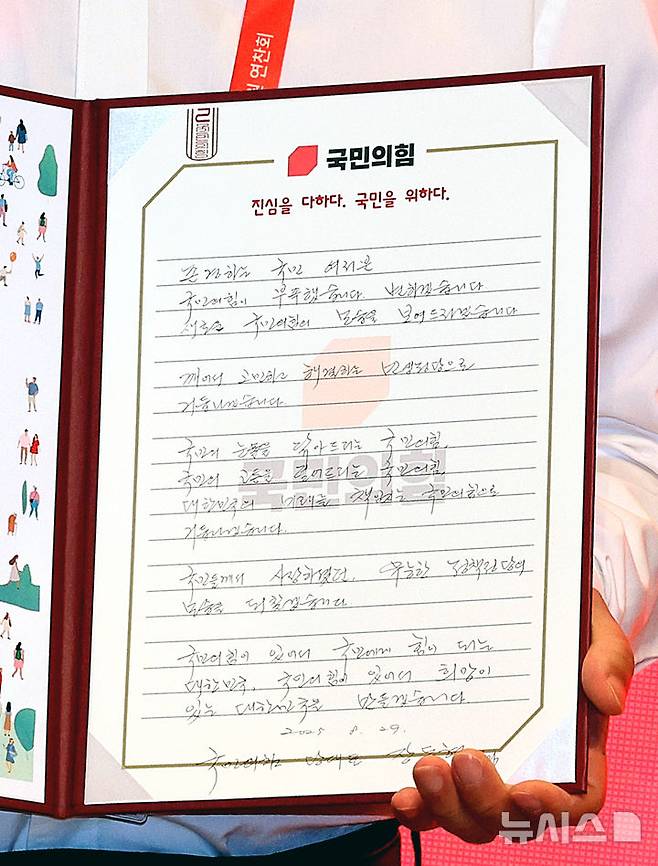 연찬회
국민의힘
진심을 다하다. 국민을 위하다.
존경하는 국민 여러분
국민의힘이 부족했습니다 변하겠습니다
새로운 국민의힘의 모습을 보여드리겠습니다
깨어서 고민하고 해결하는 민생정당으로
거듭나겠습니다
국민의 눈물을 닦아드리는 국민의힘,
국민의 고통을 덜어드리는 국민의힘,
대한민국의 미래를 책임지는 국민의힘으로
거듭나겠습니다.
국민들께서 사랑하셨던, 유능한 정책정당의
모습을 되찾겠습니다
국민의힘이 있어서 국민에게 힘이 되는
대한민국, 국민의힘이 있어서 희망이
있는 대한민국을 만들겠습니다.
2025. 8. 29.
국민의힘 당대표 장동혁
국민의힘
뉴시스